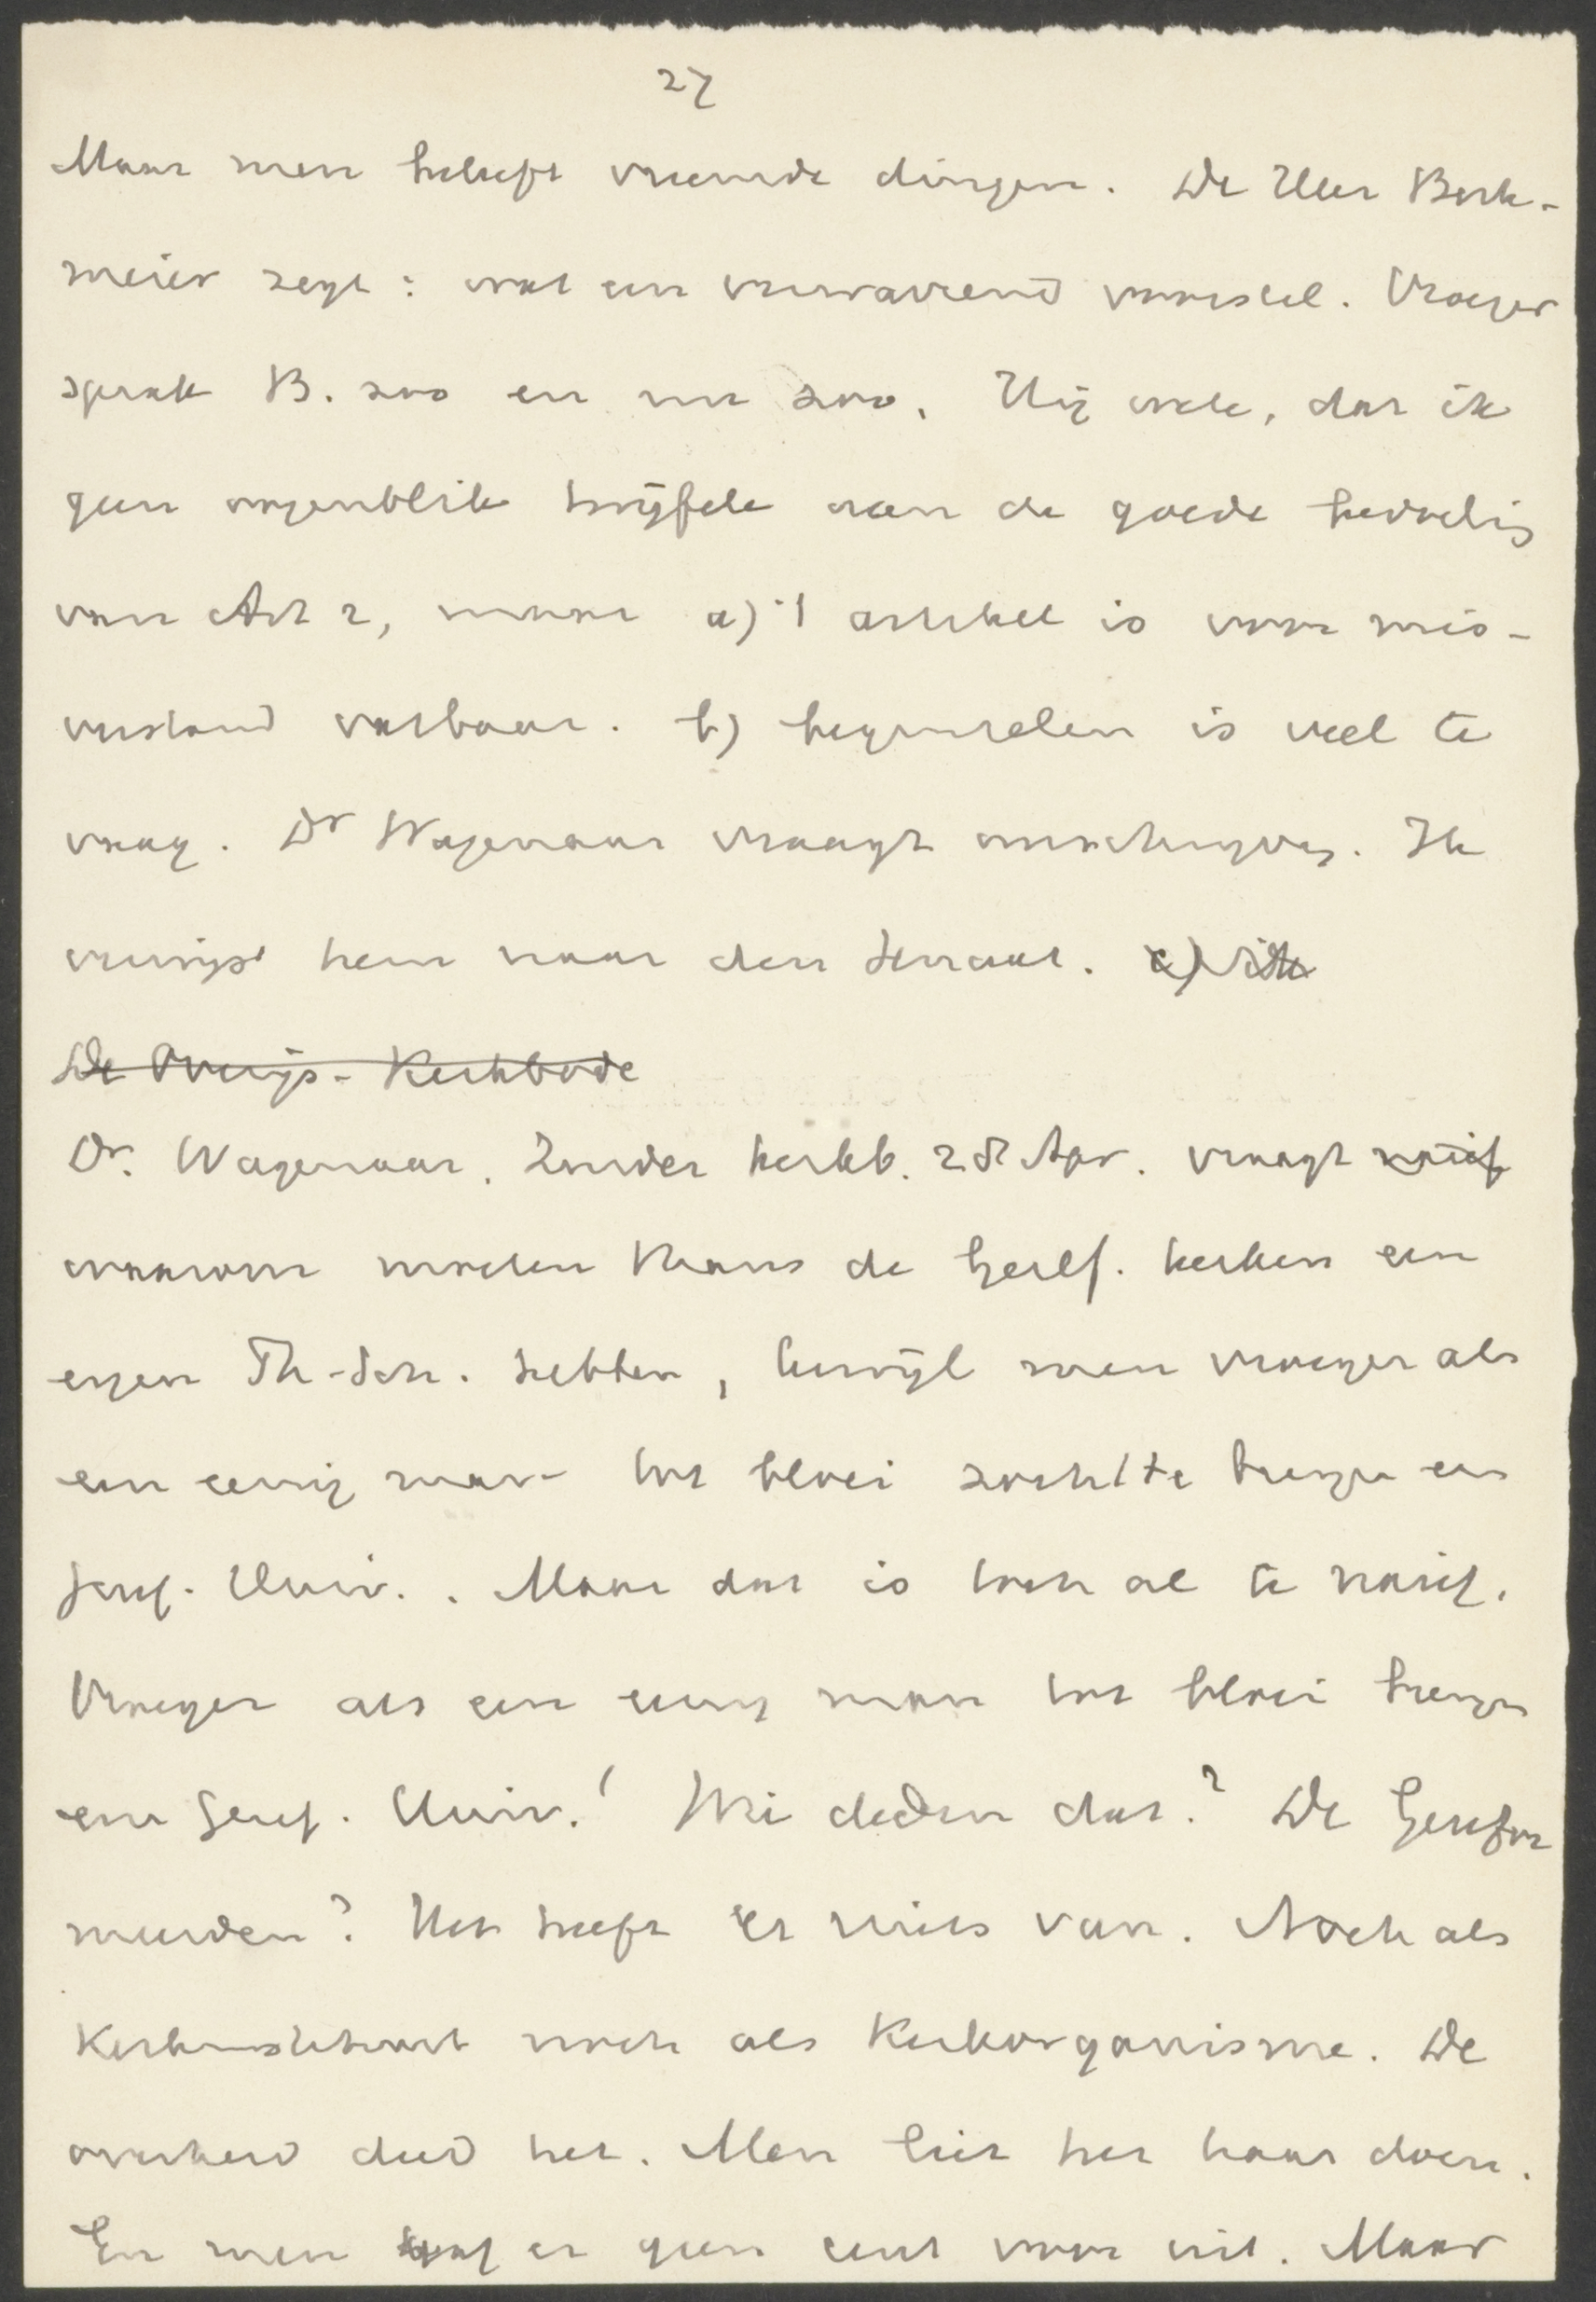 27
Maar men beleeft vreemde dingen. De Heer Berk-
meier zegt: wat een verwarrend voorstel. Vroeger
sprak B. zoo en nu zoo. Hij wete, dat ik
geen oogenblik twijfele aan de goede bedoelig
van Art 2, maar a) 't artikel is voor mis-
verstand vatbaar. b) beginselen is veel te
vaag. Dr Wagenaar vraagt omschrijving. Ik
verwijs hem naar den Heraut. c)
De Overijs- Kerkbode
Dr. Wagenaar. Zuider kerkb. 28 Apr. vraagt naief
waarom moeten thans de Geref. kerken een
eigen Th-Sch. hebben, terwijl men vroeger als
een eenig man tot bloei zochtte brengen een
Geref. Univ.. Maar dat is toch al te naief.
Vroeger als een eenig man tot bloei brengen
een Geref. Univ.! Wie deden dat? De Gerefor
meerden? Het heeft er niets van. Noch als
Kerkinstituut noch als Kerkorganisme. De
overheid deed het. Men liet het haar doen.
En men gaf er geen cent voor uit. Maar